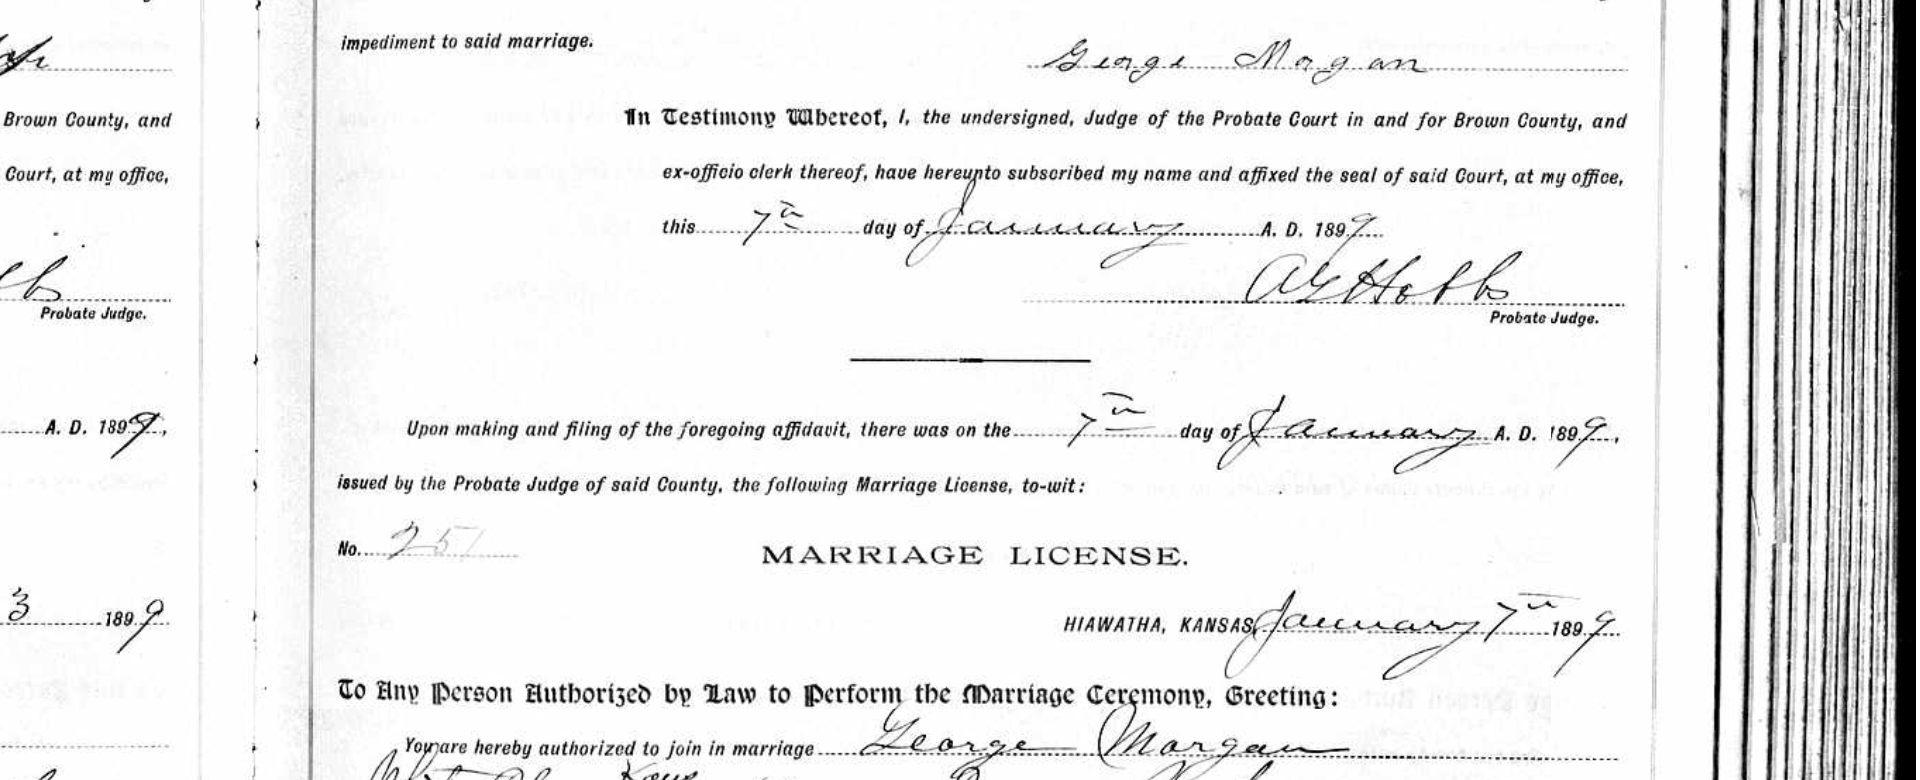 Brown County, and
Court, at my office,
Probate Judge.
A. D. 1899,
3 1899
impediment to said marriage.
George Morgan
In Testimony Whereof, I, the undersigned, Judge of the Probate Court in and for Brown County, and
ex-officio clerk thereof, have hereunto subscribed my name and affixed the seal of said Court, at my office,
this 7th day of January A. D. 1899
Hobbs
Probate Judge.
Upon making and filing of the foregoing affidavit, there was on the 7th day of January A. D. 1899,
issued by the Probate Judge of said County, the following Marriage License, to-wit:
No. 251
MARRIAGE LICENSE.
HIAWATHA, KANSAS, January 7th 1899
To Any Person Authorized by Law to Perform the Marriage Ceremony, Greeting:
You are hereby authorized to join in marriage George Morgan